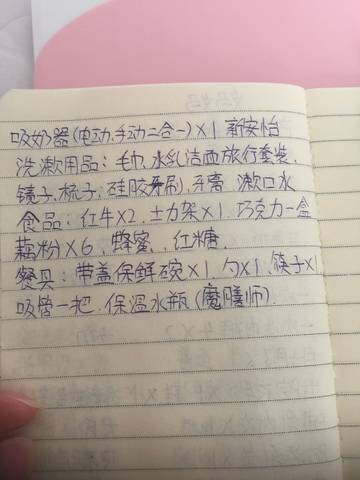 吸奶器(电动、手动二合一)×1 新安怡
洗漱用品：毛巾、水乳洁面旅行套装、
镜子、梳子、硅胶牙刷、牙膏、漱口水
食品：红牛×2、士力架×1、巧克力一盒
藕粉×6、蜂蜜、红糖、
餐具：带盖保鲜碗×1、勺×1、筷子×1
吸管一把、保温水瓶(魔膳师)